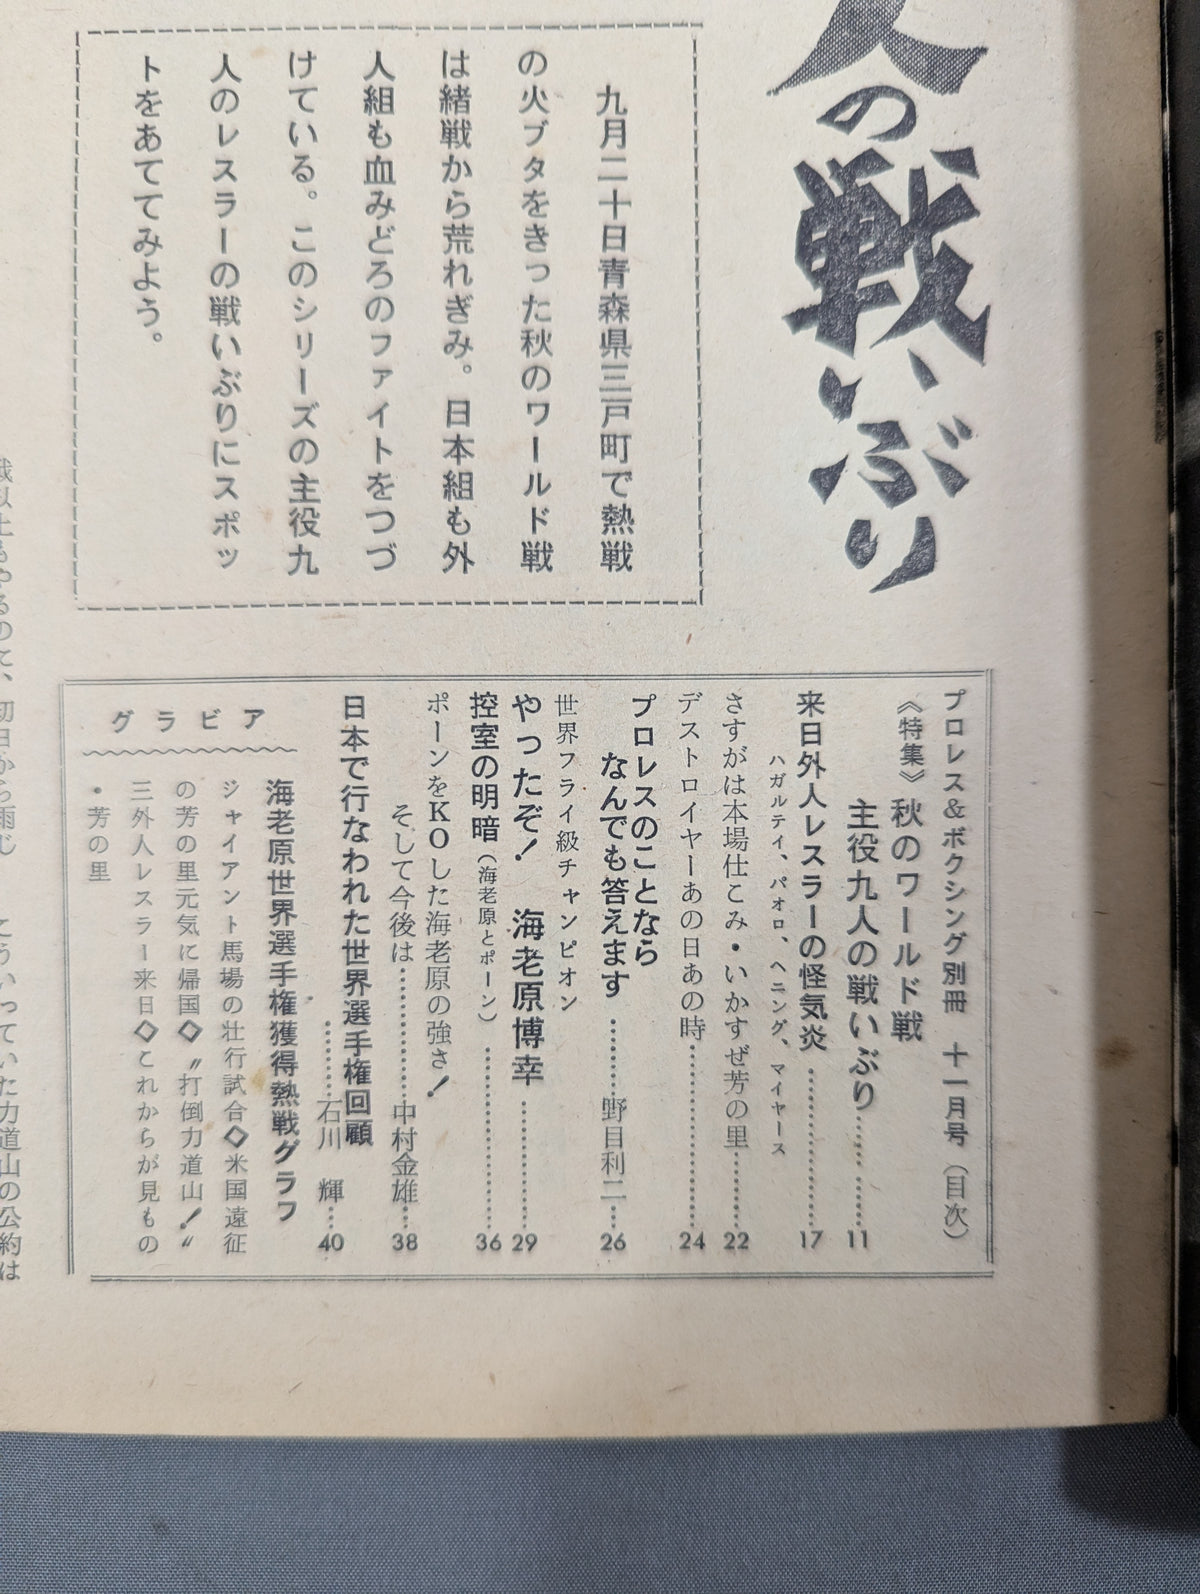 人の戦いぶり
九月二十日青森県三戸町で熱戦
の火ブタをきった秋のワールド戦
は緒戦から荒れぎみ。日本組も外
人組も血みどろのファイトをつづ
けている。このシリーズの主役九
人のレスラーの戦いぶりにスポッ
トをあててみよう。
プロレス&ボクシング別冊 十一月号(目次)
《特集》秋のワールド戦
主役九人の戦いぶり…… ……11
来日外人レスラーの怪気炎……………17
ハガルティ、パオロ、ヘニング、マイヤース
さすがは本場仕こみ・いかすぜ芳の里………22
デストロイヤーあの日あの時………………24
プロレスのことなら
なんでも答えます…………野目利二…26
世界フライ級チャンピオン
やったぞ! 海老原博幸……………29
控室の明暗(海老原とポーン)………………36
ポーンをKOした海老原の強さ!
そして今後は……………中村金雄…38
日本で行なわれた世界選手権回顧
…………石川 輝…40
グラビア
海老原世界選手権獲得熱戦グラフ
ジャイアント馬場の壮行試合◇米国遠征
の芳の里元気に帰国◇〝打倒力道山!〟
三外人レスラー来日◇これからが見もの
・芳の里
戦以上もやるので、初日から雨じ
こういっていた力道山の公約は